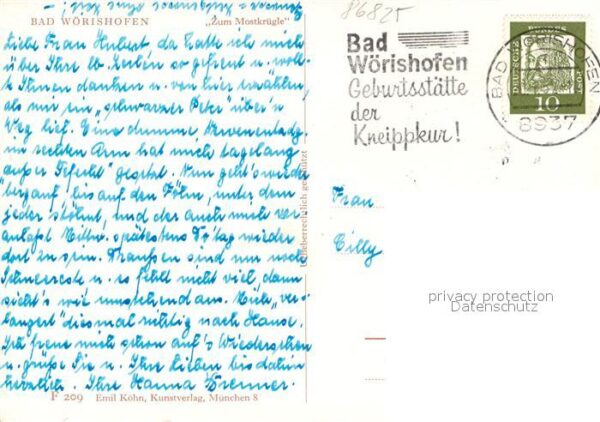 86825
BAD WÖRISHOFEN „Zum Mostkrügle"
Liebe Frau Hubert, da hatte ich mich
über Ihre lb. Zeilen so gefreut u. wollte
Ihnen danken u. von hier erzählen,
als mir ein „schwarzer Peter" über'n
Weg lief. Eine dumme Nervenentzdg.
im rechten Arm hat mich tagelang
„außer Gefecht" gesetzt. Nun geht's wieder
bergauf bis auf den Föhn, unter dem
jeder stöhnt, und der auch mich ver-
anlaßt Mittw. spätestens Do'tag wieder
dort zu sein. Draußen sind nur noch
Schneereste u. es fehlt nicht viel, dann
sieht's wie umgehend aus. Mich „ver-
langert" diesmal richtig nach Hause.
Ich freue mich schon auf's Wiedersehen
u. grüße Sie u. Ihre Lieben bis dahin
herzlich. Ihre Hanna
F 209 Emil Köhn, Kunstverlag, München 8
Urheberrechtlich geschützt
Bad
Wörishofen
Geburtsstätte
der
Kneippkur!
BAD WÖRISHOFEN
8937
DEUTSCHE BUNDESPOST
10
Frau
Cilly
privacy protection
Datenschutz